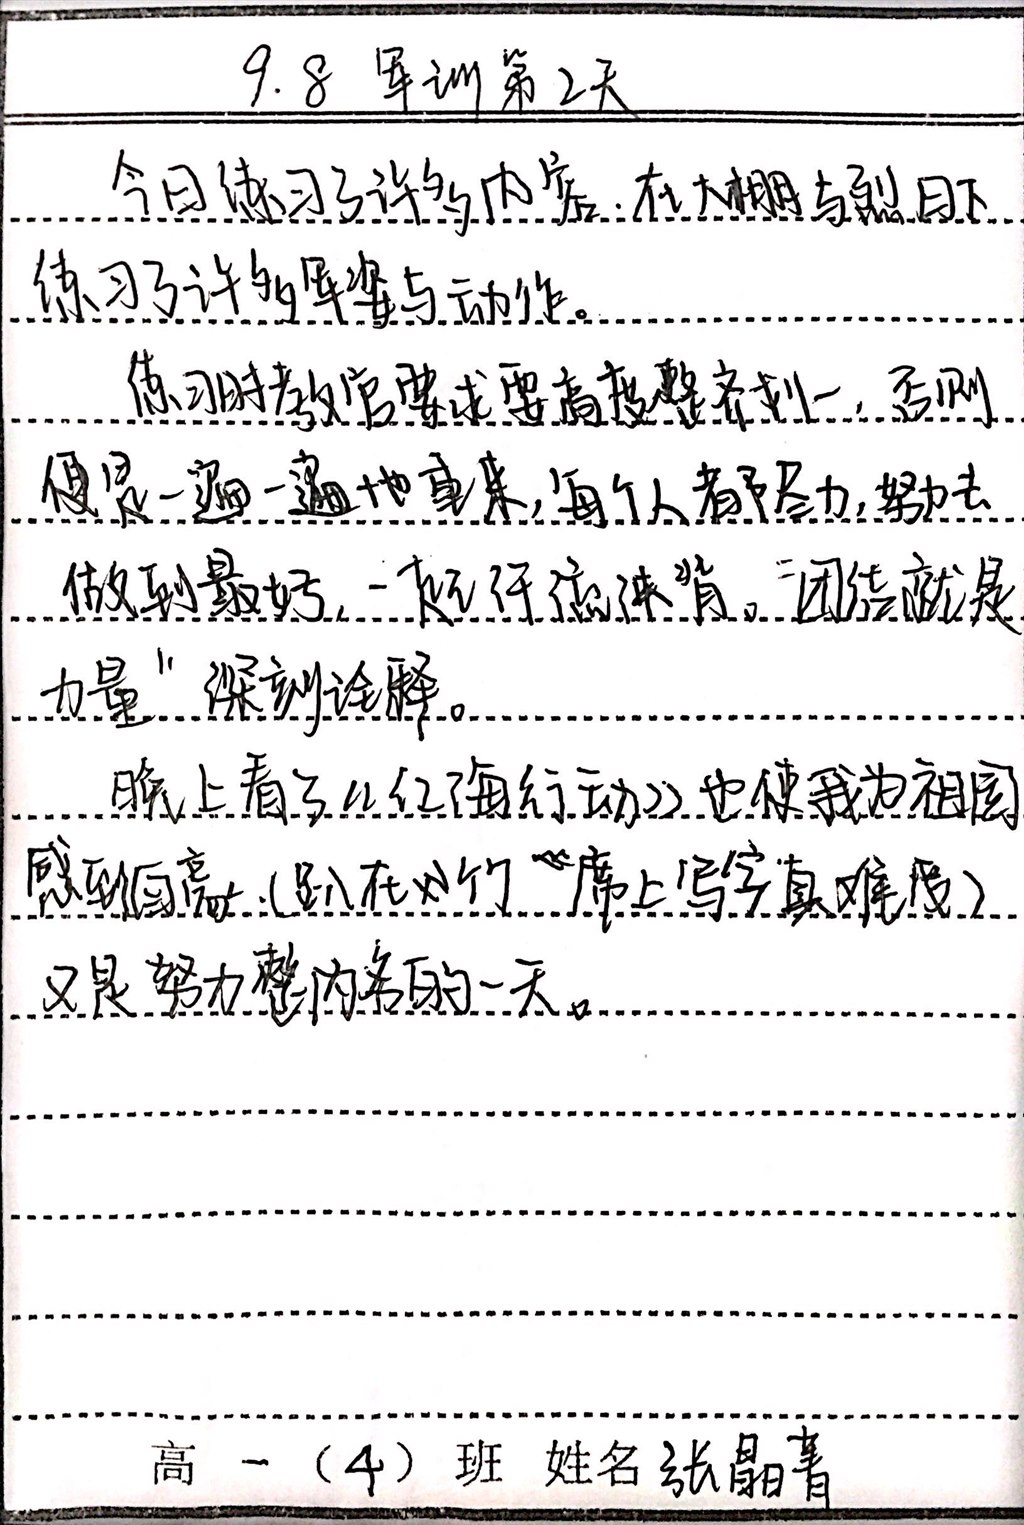 9.8 军训第2天
今日练习了许多内容.在大棚与烈日下
练习了许多军姿与动作。
练习时教官要求要高度整齐划一,否则
便是一遍一遍地重来,每个人都尽力,努力去
做到最好,一起汗流浃背。"团结就是
力量"深刻诠释。
晚上看了《红海行动》也使我为祖国
感到自豪.(趴在竹席上写字真难受)
又是努力整内务的一天。
高一(4)班 姓名张晶菁